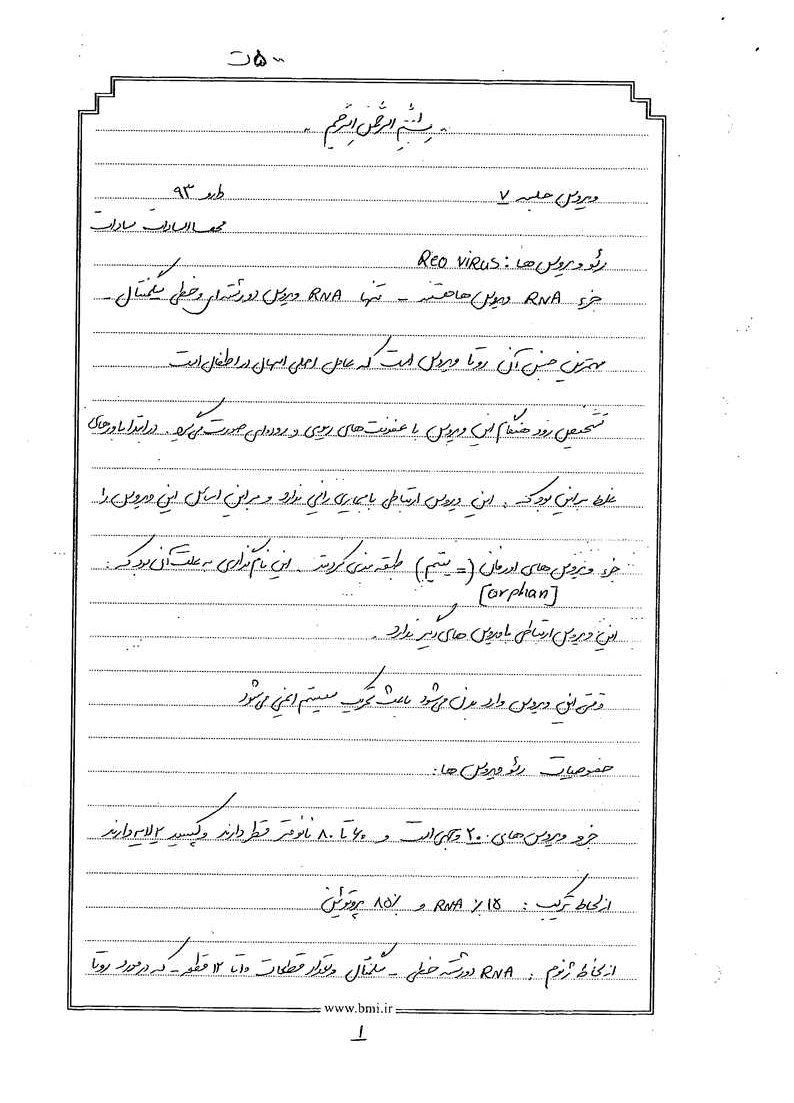 ۵۰۰ ت
- بسم الله الرحمن الرحیم -
ویروس جلسه ۷ دارو ۹۳
محیا السادات سادات
رئو ویروس ها : Reo virus
جزء RNA ویروس ها هستند - تنها RNA ویروس دو رشته ای و خطی سگمنتال -
مهمترین جنس آن روتا ویروس است که عامل اصلی اسهال در اطفال است
تشخیص زود هنگام این ویروس با عفونت های ریوی و روده ای صورت می گیرد . در ابتدا باورهای
غلط بر این بود که : این ویروس ارتباطی با بیماری زایی ندارد و بر این اساس این ویروس را
جزء ویروس های اورفان (= یتیم) طبقه بندی کردند . این نام گذاری به علت آن بود که :
[orphan]
این ویروس ارتباطی با ویروس های دیگر ندارد .
وقتی این ویروس وارد بدن می شود باعث تحریک سیستم ایمنی می شود
خصوصیات رئو ویروس ها :
جزو ویروس های ۲۰ وجهی است و ۶۰ تا ۸۰ نانومتر قطر دارند و کپسید ۲ لایه دارند
از لحاظ ترکیب : ۱۵٪ RNA و ۸۵٪ پروتوئین
از لحاظ ژنوم : RNA دو رشته خطی - سگمنتال و تعداد قطعات ۱۰ تا ۱۲ قطعه - که در مورد روتا
www.bmi.ir
۱